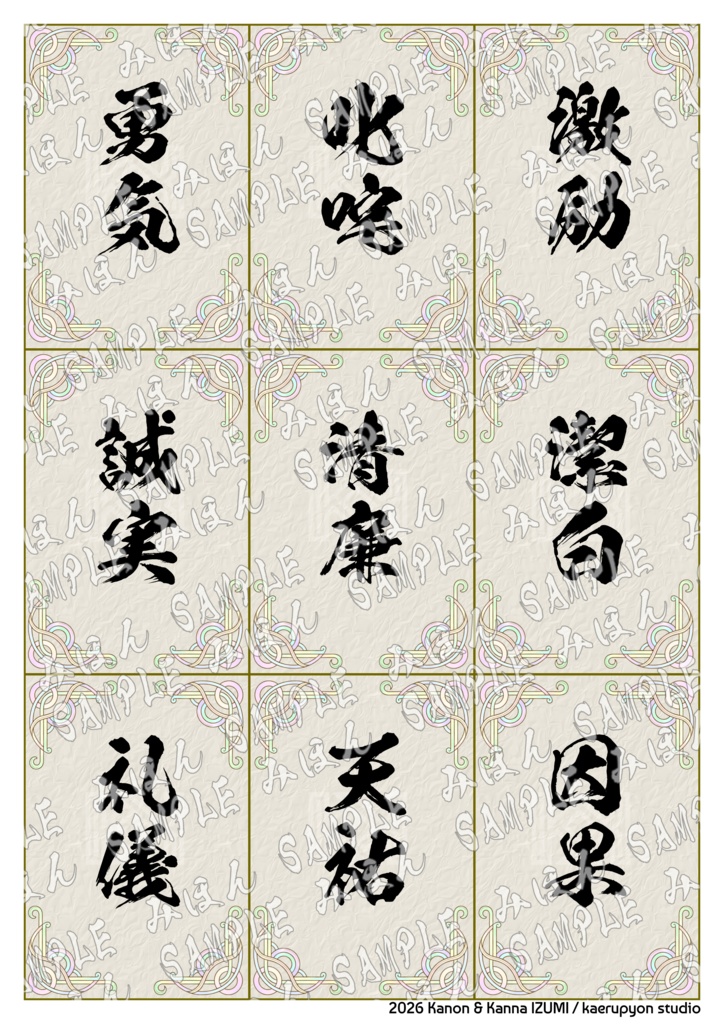 勇気
叱咤
激励
誠実
清廉
潔白
礼儀
天祐
因果
みほん
SAMPLE
2026 Kanon & Kanna IZUMI / kaerupyon studio